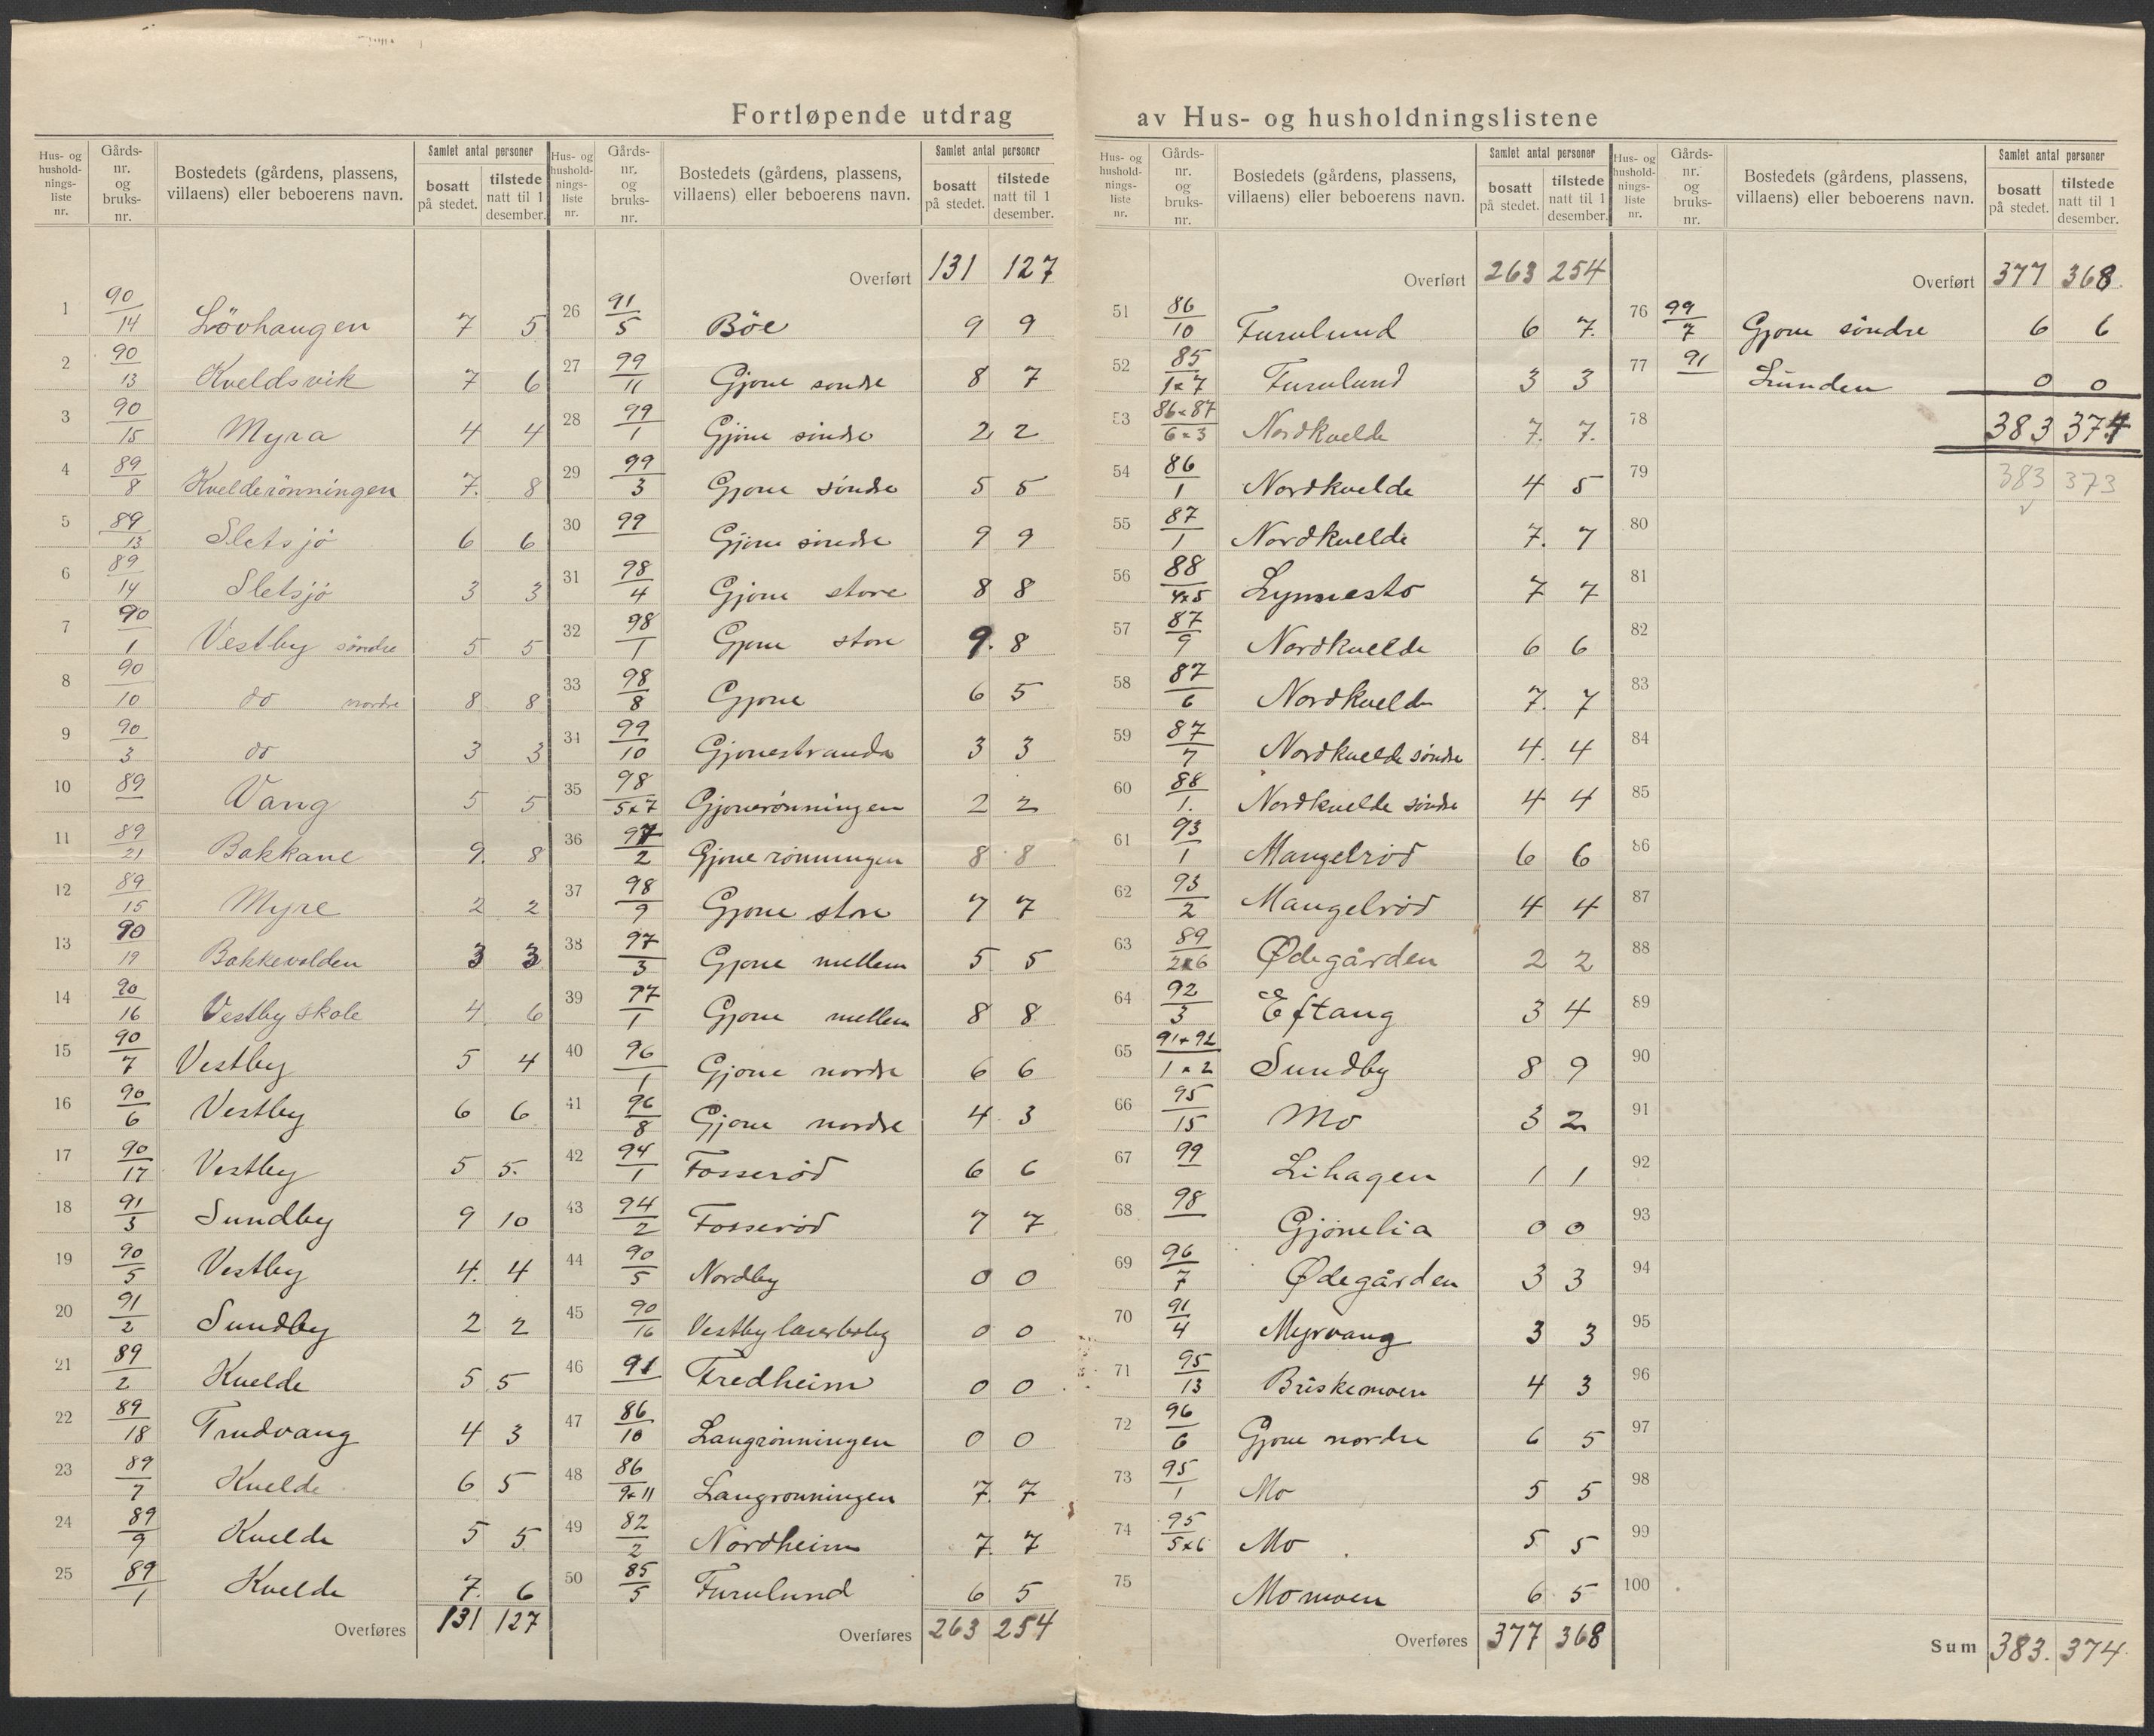 Fortløpende utdrag av Hus- og husholdningslistene
Hus- og hushold-nings-liste nr. | Gårds-nr. og bruks-nr. | Bostedets (gårdens, plassens, villaens) eller beboerens navn. | Samlet antal personer bosatt på stedet. | tilstede natt til 1 desember.
1 90/14 Lövhaugen 7 5
2 90/13 Kveldsvik 7 6
3 90/15 Myra 4 4
4 89/8 Kvelderönningen 7. 8
5 89/13 Sletsjö 6 6
6 89/14 Sletsjö 3 3
7 90/1 Vestby söndre 5 5
8 90/10 do nordre 8 8
9 90/3 do 3 3
10 89 Vang 5 5
11 89/21 Bakkane 9. 8
12 89/15 Myre 2 2
13 90/19 Bakkevolden 3 3
14 90/16 Vestby skole 4 6
15 90/7 Vestby 5 4
16 90/6 Vestby 6 6
17 90/17 Vestby 5 5.
18 91/3 Sundby 9 10
19 90/5 Vestby 4. 4
20 91/2 Sundby 2 2
21 89/2 Kvelde 5 5
22 89/18 Trudvang 4 3
23 89/7 Kvelde 6 5
24 89/9 Kvelde 5 5
25 89/1 Kvelde 7. 6
Overføres 131 127
Hus- og hushold-nings-liste nr. | Gårds-nr. og bruks-nr. | Bostedets (gårdens, plassens, villaens) eller beboerens navn. | Samlet antal personer bosatt på stedet. | tilstede natt til 1 desember.
Overført 131 127
26 91/5 Böe 9 9
27 99/11 Gjone sondre 8 7
28 99/1 Gjone söndre 2 2
29 99/3 Gjone söndre 5 5
30 99 Gjone söndre 9 9
31 98/4 Gjone store 8 8
32 98/1 Gjone store 9. 8
33 98/8 Gjone 6 5
34 99/10 Gjonestranda 3 3
35 98/5x7 Gjonerönningen 2 2
36 97/2 Gjone rönningen 8 8
37 98/9 Gjone store 7 7
38 97/3 Gjone mellem 5 5
39 97/1 Gjone mellem 8 8
40 96/1 Gjone nordre 6 6
41 96/8 Gjone nordre 4 3
42 94/1 Fosseröd 6 6
43 94/2 Fosseröd 7 7
44 90/5 Nordby 0 0
45 90/16 Vestby lærerbolig 0 0
46 91 Fredheim 0 0
47 86/10 Langrönningen 0 0
48 86/9x11 Langronningen 7. 7
49 82/2 Nordheim 7. 7
50 85/5 Furulund 6 5
Overføres 263 254
Hus- og hushold-nings-liste nr. | Gårds-nr. og bruks-nr. | Bostedets (gårdens, plassens, villaens) eller beboerens navn. | Samlet antal personer bosatt på stedet. | tilstede natt til 1 desember.
Overført 263 254
51 86/10 Furulund 6 7.
52 85/1x7 Furulund 3 3
53 86x87/6x3 Nordkvelde 7. 7.
54 86/1 Nordkvelde 4 5
55 87/1 Nordkvelde 7. 7
56 88/4x5 Lynnesto 7 7
57 87/9 Nordkvelde 6 6
58 87/6 Nordkvelde 7. 7
59 87/7 Nordkvelde söndre 4. 4
60 88/1. Nordkvelde söndre 4 4
61 93/1 Mangelröd 6 6
62 93/2 Mangelröd 4 4
63 89/2x6 Ødegården 2 2
64 92/3 Eftang 3 4
65 91x92/1x2 Sundby 8 9
66 95/15 Mo 3 2
67 99 Lihagen 1 1
68 98 Gjönelia 0 0
69 96/7 Ødegården 3 3
70 91/4 Myrvang 3 3
71 95/13 Briskemoen 4 3
72 96/6 Gjone nordre 6 5
73 95/1 Mo 5 5
74 95/5x6 Mo 5 5
75 Momoen 6 5
Overføres 377 368
Hus- og hushold-nings-liste nr. | Gårds-nr. og bruks-nr. | Bostedets (gårdens, plassens, villaens) eller beboerens navn. | Samlet antal personer bosatt på stedet. | tilstede natt til 1 desember.
Overført 377 368
76 99/7 Gjone söndre 6 6
77 91 Lunden 0 0
78 383 374
79 383 373
80
81
82
83
84
85
86
87
88
89
90
91
92
93
94
95
96
97
98
99
100
Sum 383. 374